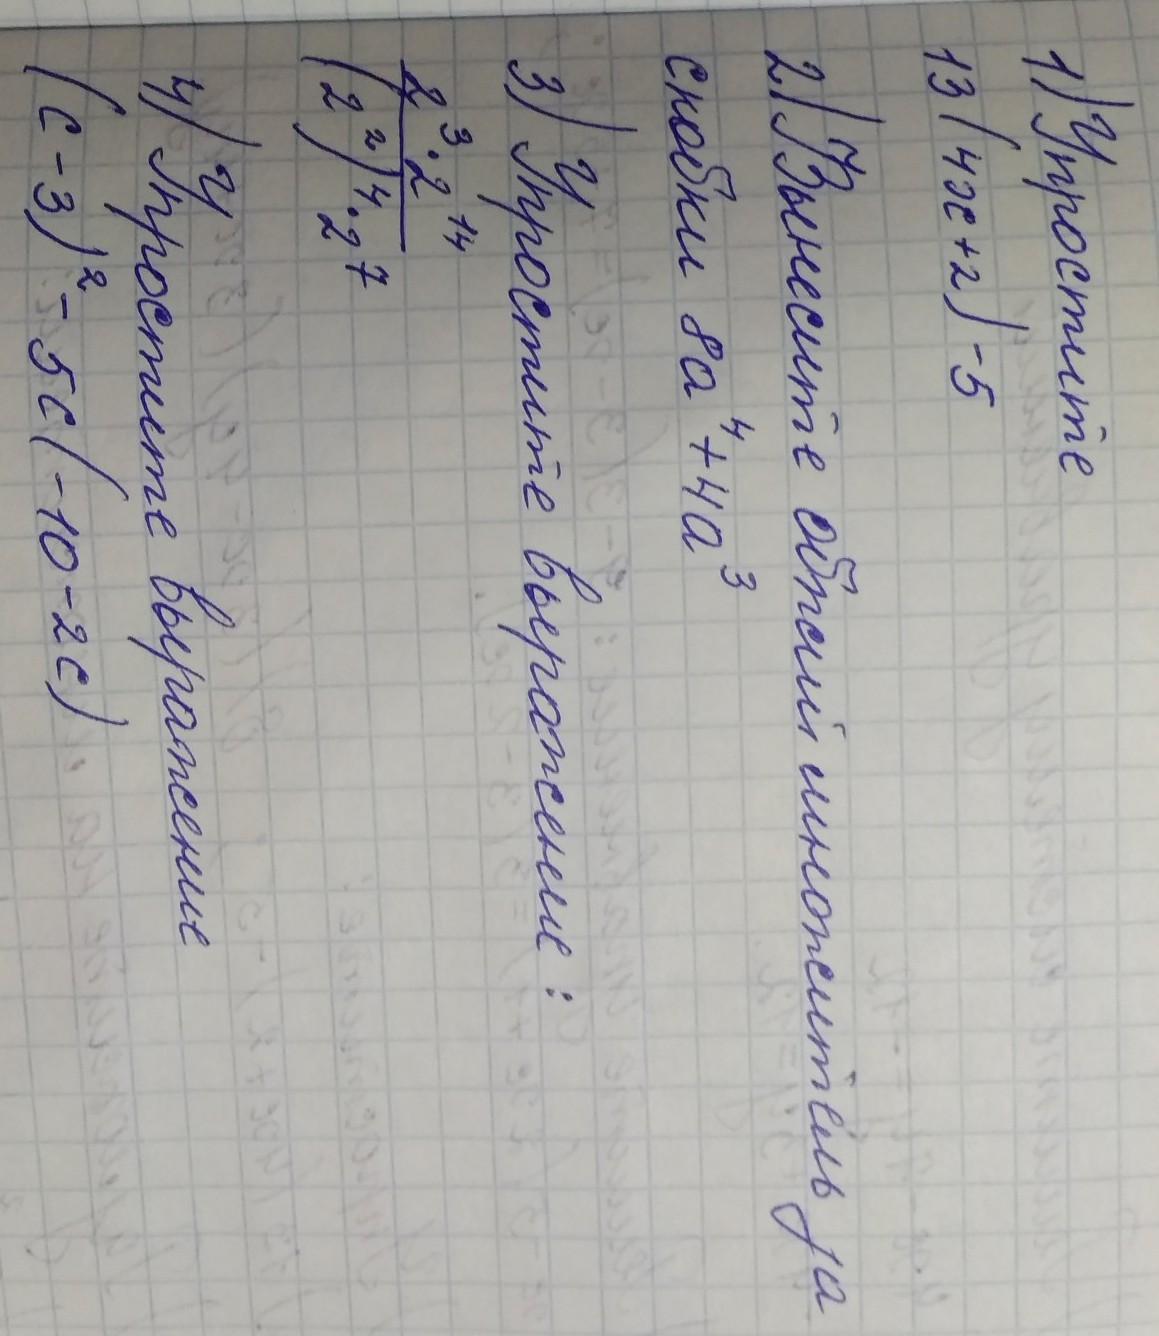 1) Упростите
13(4x+2)-5
2) Вынесите общий множитель за
скобки 8a⁴+4a³
3) Упростите выражение:
2³·2¹⁴
(2²)⁴·2⁷
4) Упростите выражение
(c-3)²-5c(-10-2c)